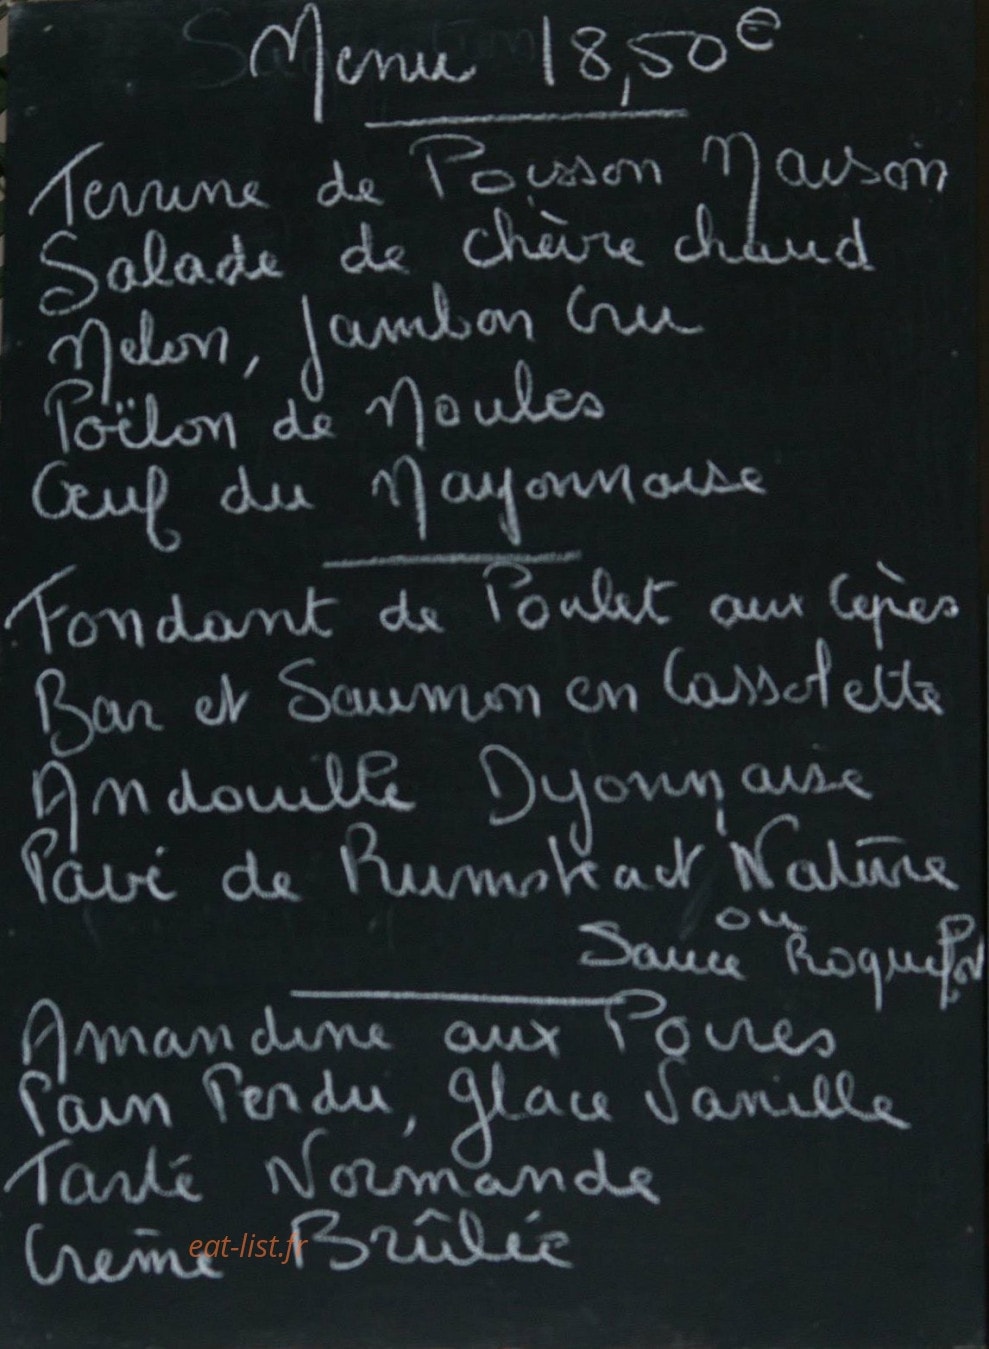 Menu 18,50€
Terrine de Poisson Maison
Salade de chèvre chaud
Melon, Jambon Cru
Poëlon de Moules
Œuf du Mayonnaise
Fondant de Poulet aux Cèpes
Bar et Saumon en Cassolette
Andouille Dyonnaise
Pavé de Rumsteack Nature
ou
Sauce Roquefort
Amandine aux Poires
Pain Perdu, glace Vanille
Tarte Normande
Crème Brûlée
eat-list.fr